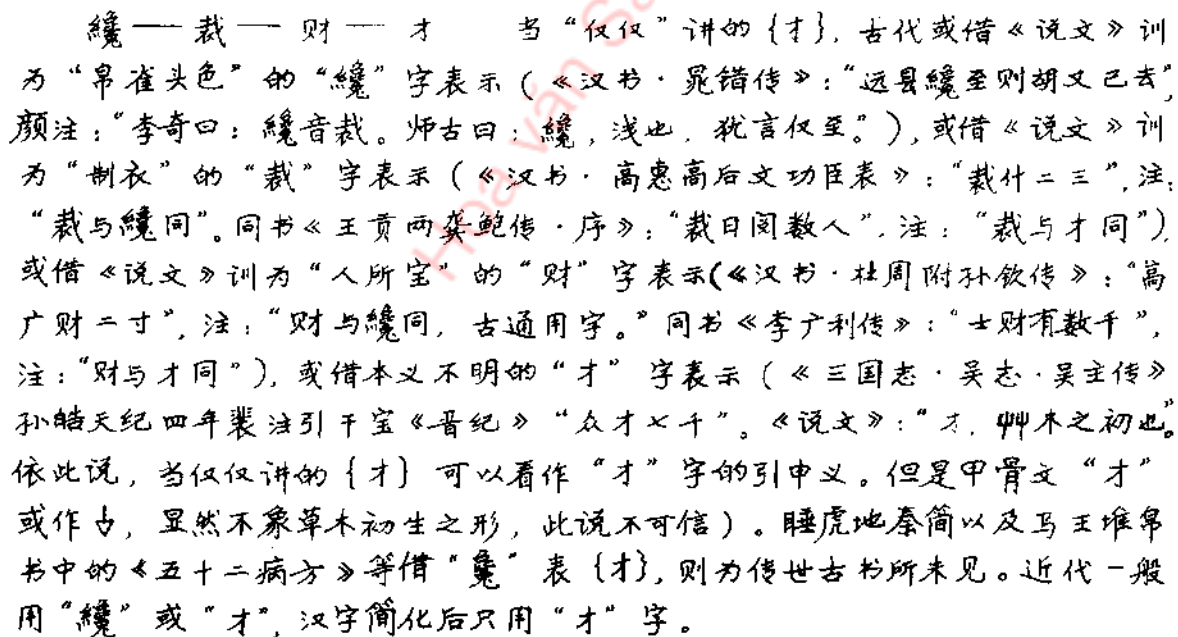 纔 — 裁 — 财 — 才　　当“仅仅”讲的{才}，古代或借《说文》训
为“帛雀头色”的“纔”字表示（《汉书·晁错传》：“远县纔至则胡又已去”，
颜注：“李奇曰：纔音裁。师古曰：纔，浅也，犹言仅至。”），或借《说文》训
为“制衣”的“裁”字表示（《汉书·高惠高后文功臣表》：“裁什二三”，注：
“裁与纔同”。同书《王贡两龚鲍传·序》：“裁日阅数人”，注：“裁与才同”），
或借《说文》训为“人所宝”的“财”字表示（《汉书·杜周附孙钦传》：“高
广财二寸”，注：“财与纔同，古通用字。”同书《李广利传》：“士财有数千”，
注：“财与才同”），或借本义不明的“才”字表示（《三国志·吴志·吴主传》
孙皓天纪四年裴注引干宝《晋纪》“众才七千”。《说文》：“才，艸木之初也。”
依此说，当仅仅讲的{才}可以看作“才”字的引申义。但是甲骨文“才”
或作，显然不象草木初生之形，此说不可信）。睡虎地秦简以及马王堆帛
书中的《五十二病方》等借“毚”表{才}，则为传世古书所未见。近代一般
用“纔”或“才”，汉字简化后只用“才”字。
Hoa văn